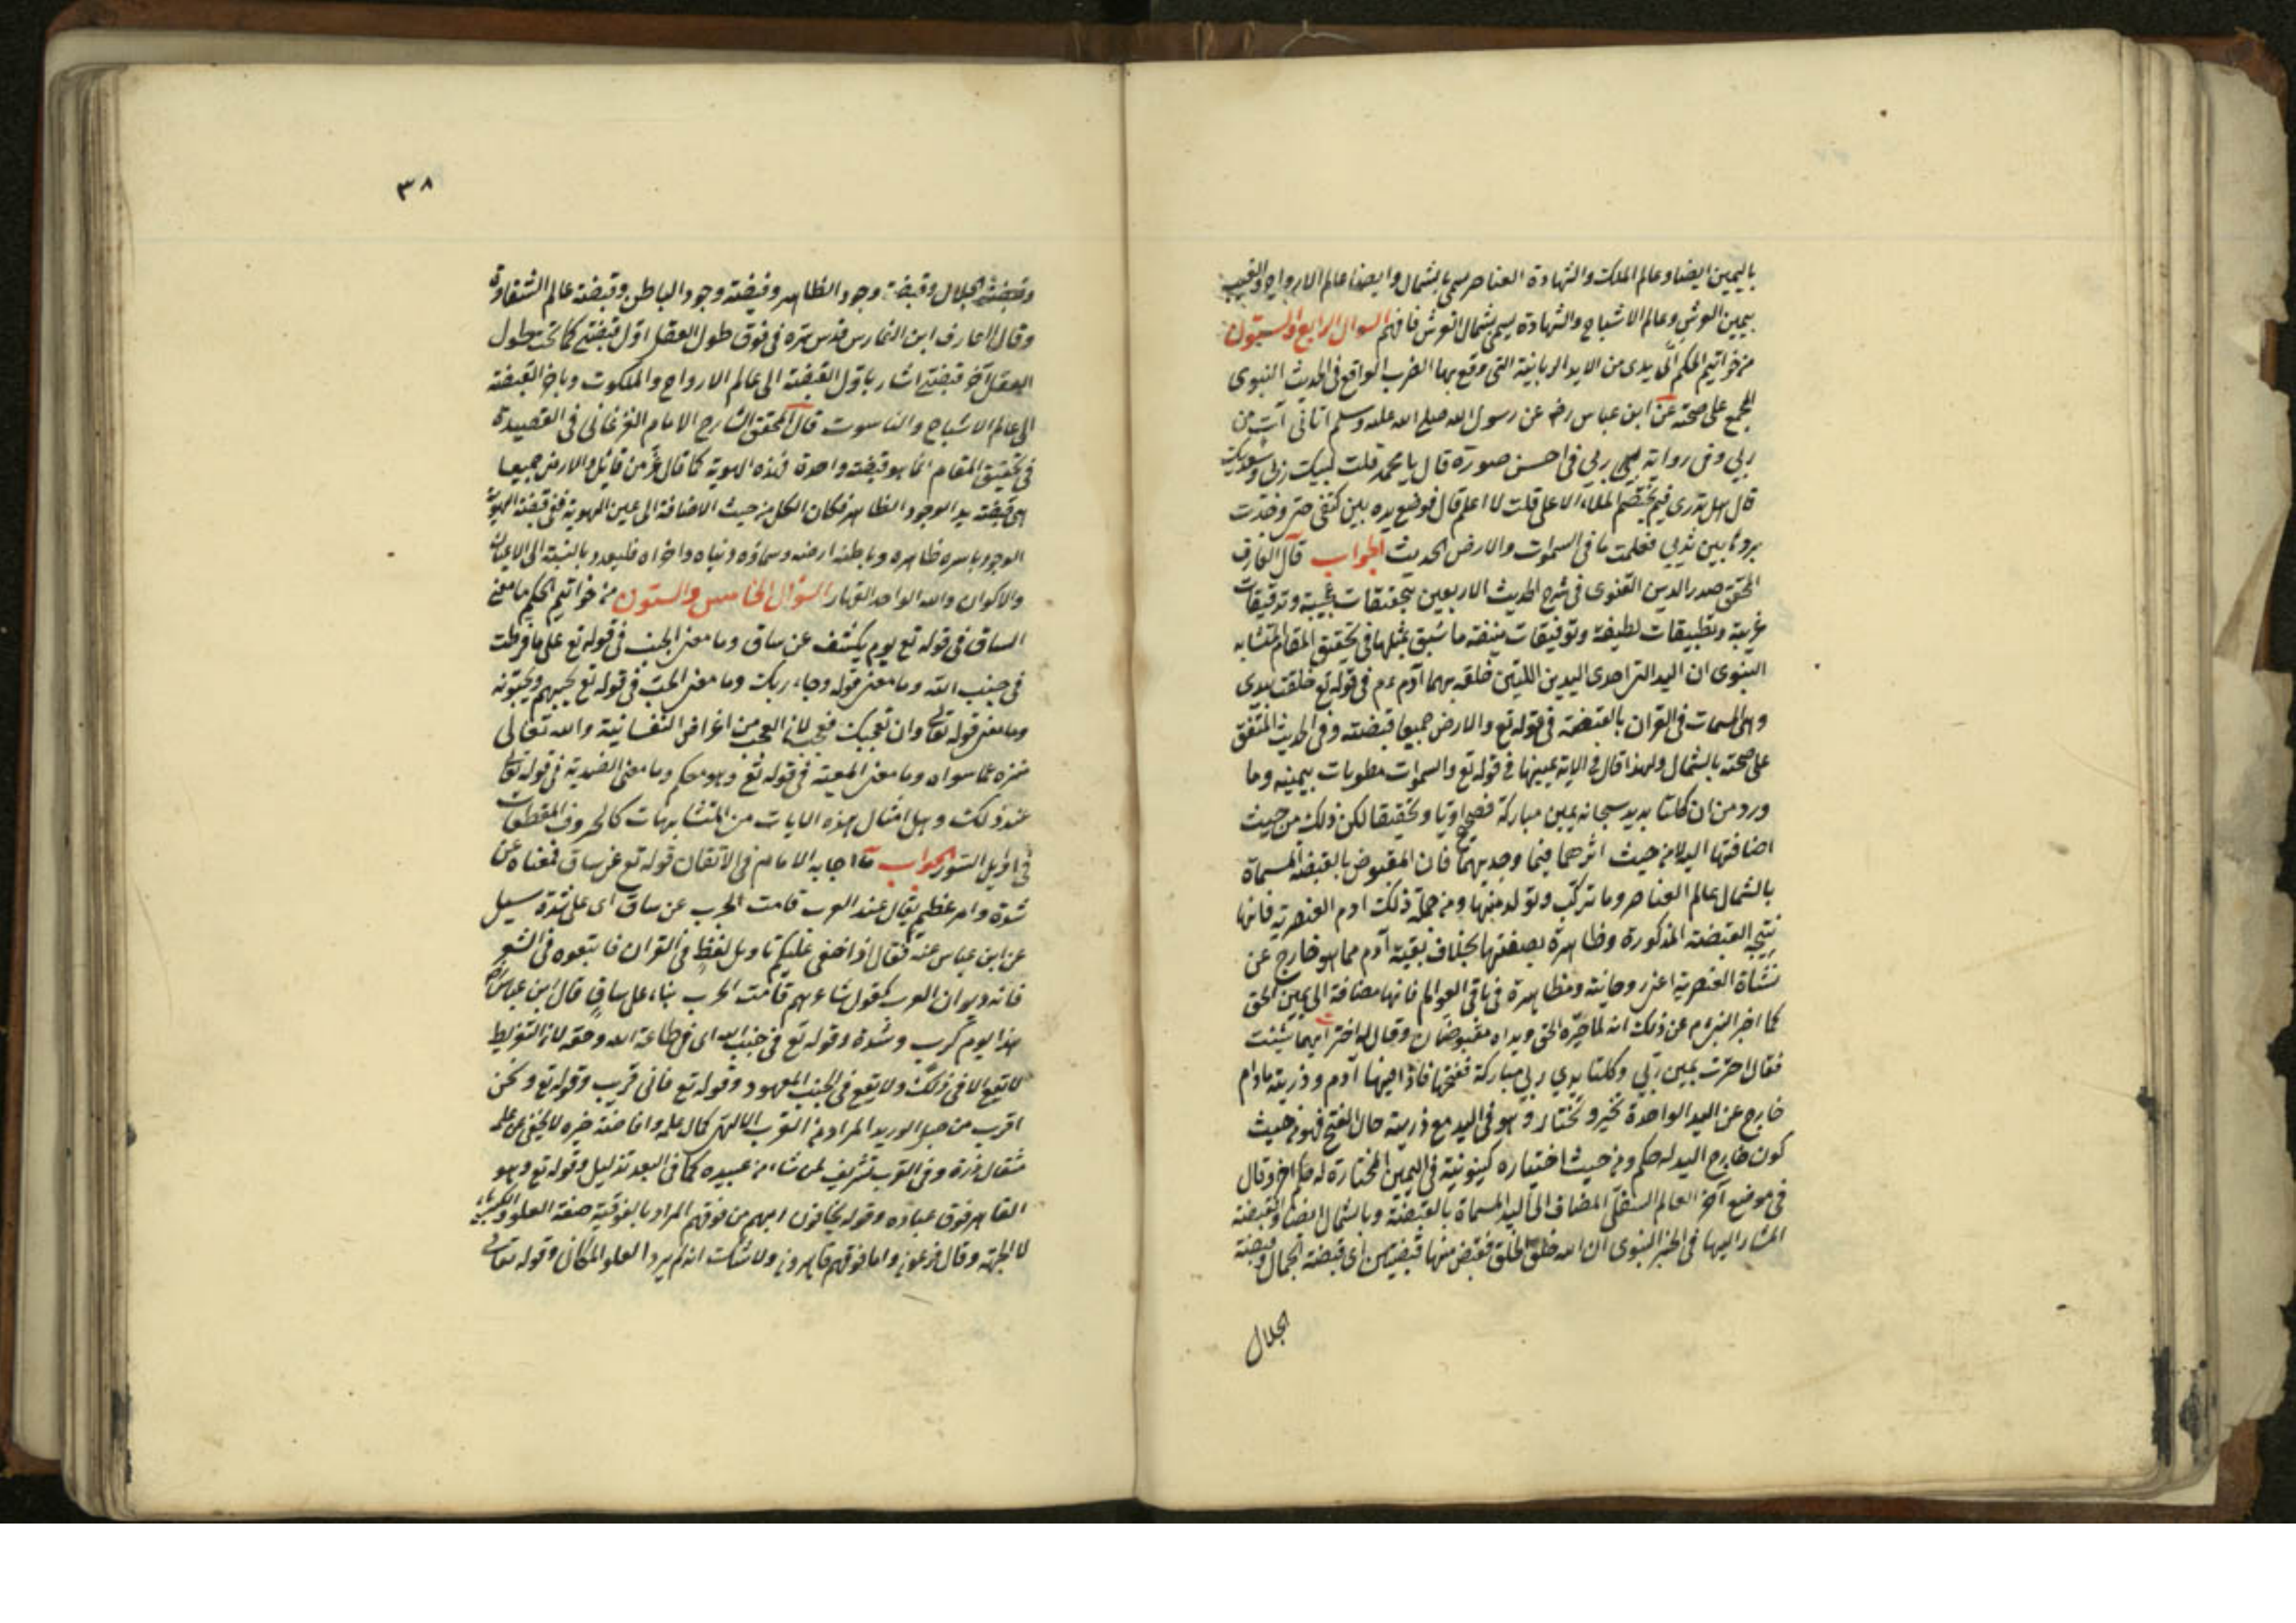 باليمين ايضا وعالم الملك والشهادة العناصر سمى بالشمال وايضا عالم الارواح والغيب
بيمين العرش وعالم الاشباح والشهادة يسمى بشمال العرش فافهم السوال الرابع والستون
من خواتيم الحكم اى يدى من الايد الربانية التى وقع بها الضرب الواقع فى الحديث النبوى
المجمع على صحته عن ابن عباس رضـ عن رسول الله صلى الله عليه وسلم اتانى آت من
ربى وفى رواية ربى فى احسن صورة قال يا محمد قلت لبيك ربى وسعديك
قال هل تدرى فيم يختصم الملاء الاعلى قلت لا اعلم قال فوضع يده بين كتفى حتى وجدت
بردها بين ثديى فعلمت ما فى السموات والارض الحديث الجواب قال العارف
المحقق صدر الدين القنوى فى شرح الحديث الاربعين بتحقيقات عجيبة وتدقيقات
غريبة وتطبيقات لطيفة وتوفيقات منيفة ما سبق بمثلها فى تحقيق المقام المتشابه
النبوى ان اليد التى احدى اليدين اللتين خلقه بهما آدم عم فى قوله تع خلقت بيدى
وهى المسمات فى القران بالقبضة فى قوله تع والارض جميعا قبضته وفى الحديث المتفق
على صحته بالشمال ولهذا قال فى الاية عينها فى قوله تع والسموات مطويات بيمينه وما
ورد من ان كلتا يديه سبحانه يمين مباركة فصحيح ادبا وتحقيقا لكن ذلك من حيث
اضافتها اليه لا من حيث اثرهما فيما وجد بهما فان المقبوض بالقبضة المسماة
بالشمال عالم العناصر وما تركب وتولد منها ومن جملة ذلك ادم العنصرية فانها
نتيجة القبضة المذكورة وظاهرة بصفتها بخلاف بقية آدم مما هو خارج عن
نشاة العنصرية اعنى روحانية ومظاهرة فى باقى العوالم فانها مضافة الى يمين الحق
كما اخبر النبى عم عن ذلك انه لما خيره الحق ويداه مقبوضتان وقال له اختر ايهما شئت
فقال اخترت يمين ربى وكلتا يدي ربى مباركة ففتحها فاذا فيها آدم وذريته مادام
خارج عن اليد الواحدة يخير ويختار وهو فى اليد مع ذريته حال الفتح فهو من حيث
كون خارج اليد له حكم ومن حيث اختياره كينونية فى اليمين المختارة له حكم آخر وقال
فى موضع آخر العالم السفلى المضاف الى اليد المسماة بالقبضة وبالشمال ايضا والقبضة
المشار اليها فى الخبر النبوى ان الله خلق الخلق فقبض منها قبضتين اى قبضة الجمال وقبضة
الجلال
٣٨
وقبضة الجلال وقبضة وجود الظاهر وقبضة وجود الباطن وقبضة عالم الشقاوة
وقال العارف ابن الفارس قدس سره فى فوق طول العقل اول قبضتى كما تحت طول
العقل آخر قبضتى اشار باول القبضة الى عالم الارواح والملكوت وباخر القبضة
الى عالم الاشباح والناسوت قال المحقق الشارح الامام الفرغانى فى القصيدة
فى تحقيق المقام انما هو قبضة واحدة فهذه الهوية كما قال عز من قائل والارض جميعا
هى قبضته يد الوجود الظاهر فكان الكل من حيث الاضافة الى عين الهوية ففى قبضة الهوية
الوجود باسره ظاهره وباطنه ارضه وسماؤه دنياه واخراه فليعد وبالنسبة الى الاعيان
والاكوان والله الواحد القهار السؤال الخامس والستون من خواتيم الحكم ما معنى
الساق فى قوله تع يوم يكشف عن ساق وما معنى الجنب فى قوله تع على ما فرطت
فى جنب الله وما معنى قوله وجاء ربك وما معنى الحب فى قوله تع يحبهم ويحبونه
وما معنى قوله تعالى وان تعجب فعجب لان العجب من اغراض النفسانية والله تعالى
منزه عما سواه وما معنى المعية فى قوله تع وهو معكم وما معنى العندية فى قوله تعالى
عند ذلك وهل امثال هذه الايات من المتشابهات كالحروف المقطعات
فى اوايل السور الجواب ما اجابه الامام فى الاتقان قوله تع عن ساق فمعناه عن
شدة وامر عظيم يقال عند العرب قامت الحرب عن ساق اى على شدة سيل
عن ابن عباس عنه فقال اذا خفى عليكم تاويل لفظ فى القران فابتغوه فى الشعر
فانه ديوان العرب كقول شاعرهم قامت الحرب بنا على ساق قال ابن عباس رضـ
هذا يوم كرب وشدة وقوله تع فى جنب الله اى فى طاعة الله وحقه لان التفريط
لا يقع الا فى ذلك ولا يقع فى الجنب المعهود وقوله تع فانى قريب وقوله تع ونحن
اقرب من حبل الوريد المراد من القرب الالهى كمال علمه وافاضة خيره لا يخفى عن علمه
مثقال ذرة وفى القرب تشريف لمن شاء من عبيده كما فى البعد تذليل وقوله تع وهو
القاهر فوق عباده وقوله يخافون ربهم من فوقهم المراد بالفوقية صفة العلو والكبرياء
لا الجهة وقال فرعون وانا فوقهم قاهرون ولا شك انه لم يرد العلو المكانى وقوله تعالى